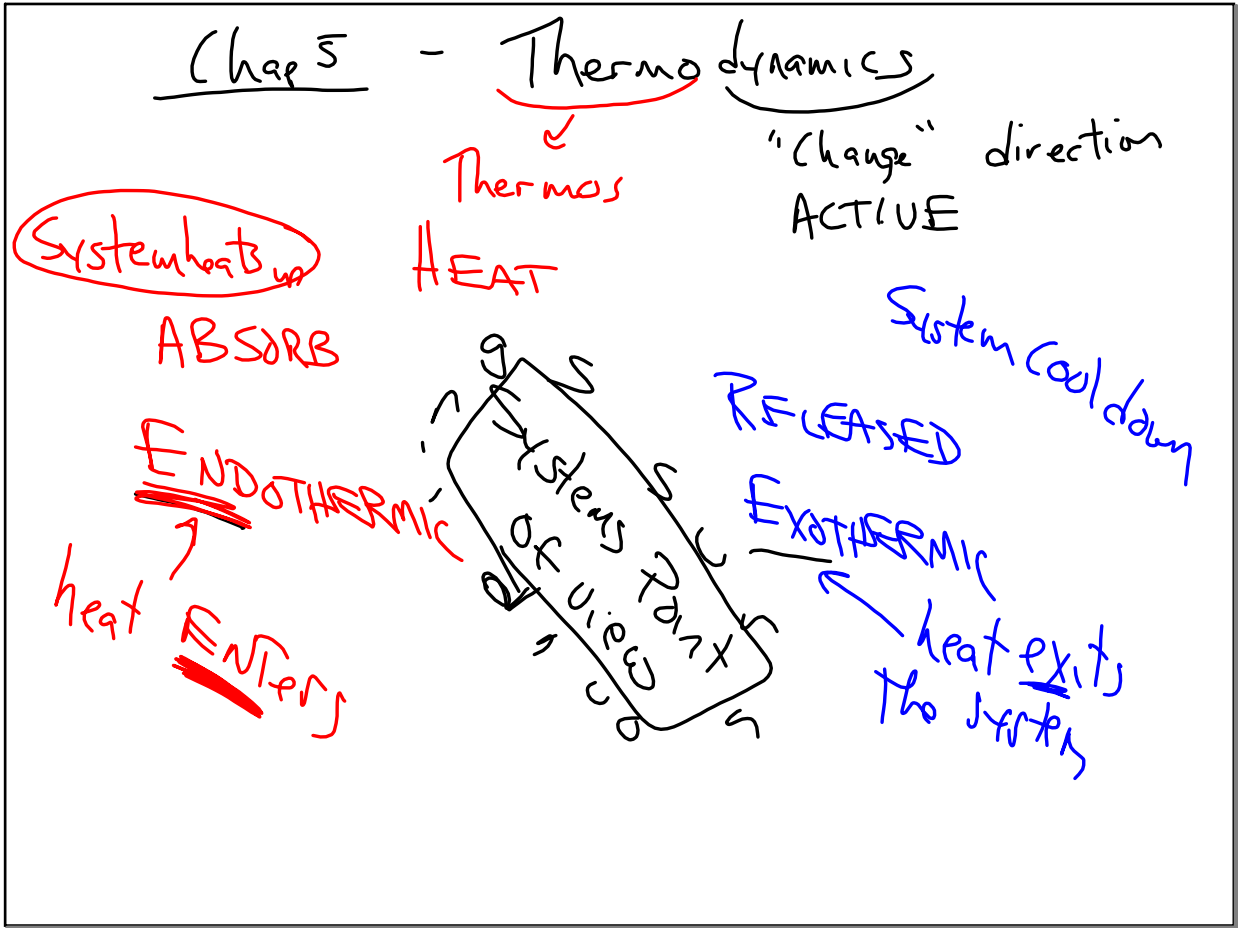 Chap 5 - Thermodynamics
Thermos
HEAT
"Change" direction
ACTIVE
System heats up
ABSORB
ENDOTHERMIC
heat ENTers
Systems Point
of view
System Cool down
RELEASED
EXOTHERMIC
heat exits
The system